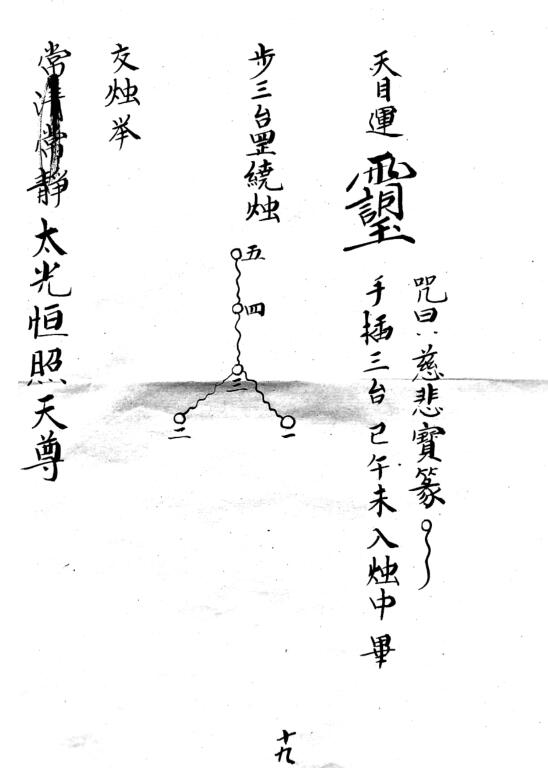 天目運
咒曰：慈悲寶篆
手掐三台 巳午未入烛中 畢
步三台罡繞烛
五
四
三
二
一
交烛举
常清常靜太光恒照天尊
十九